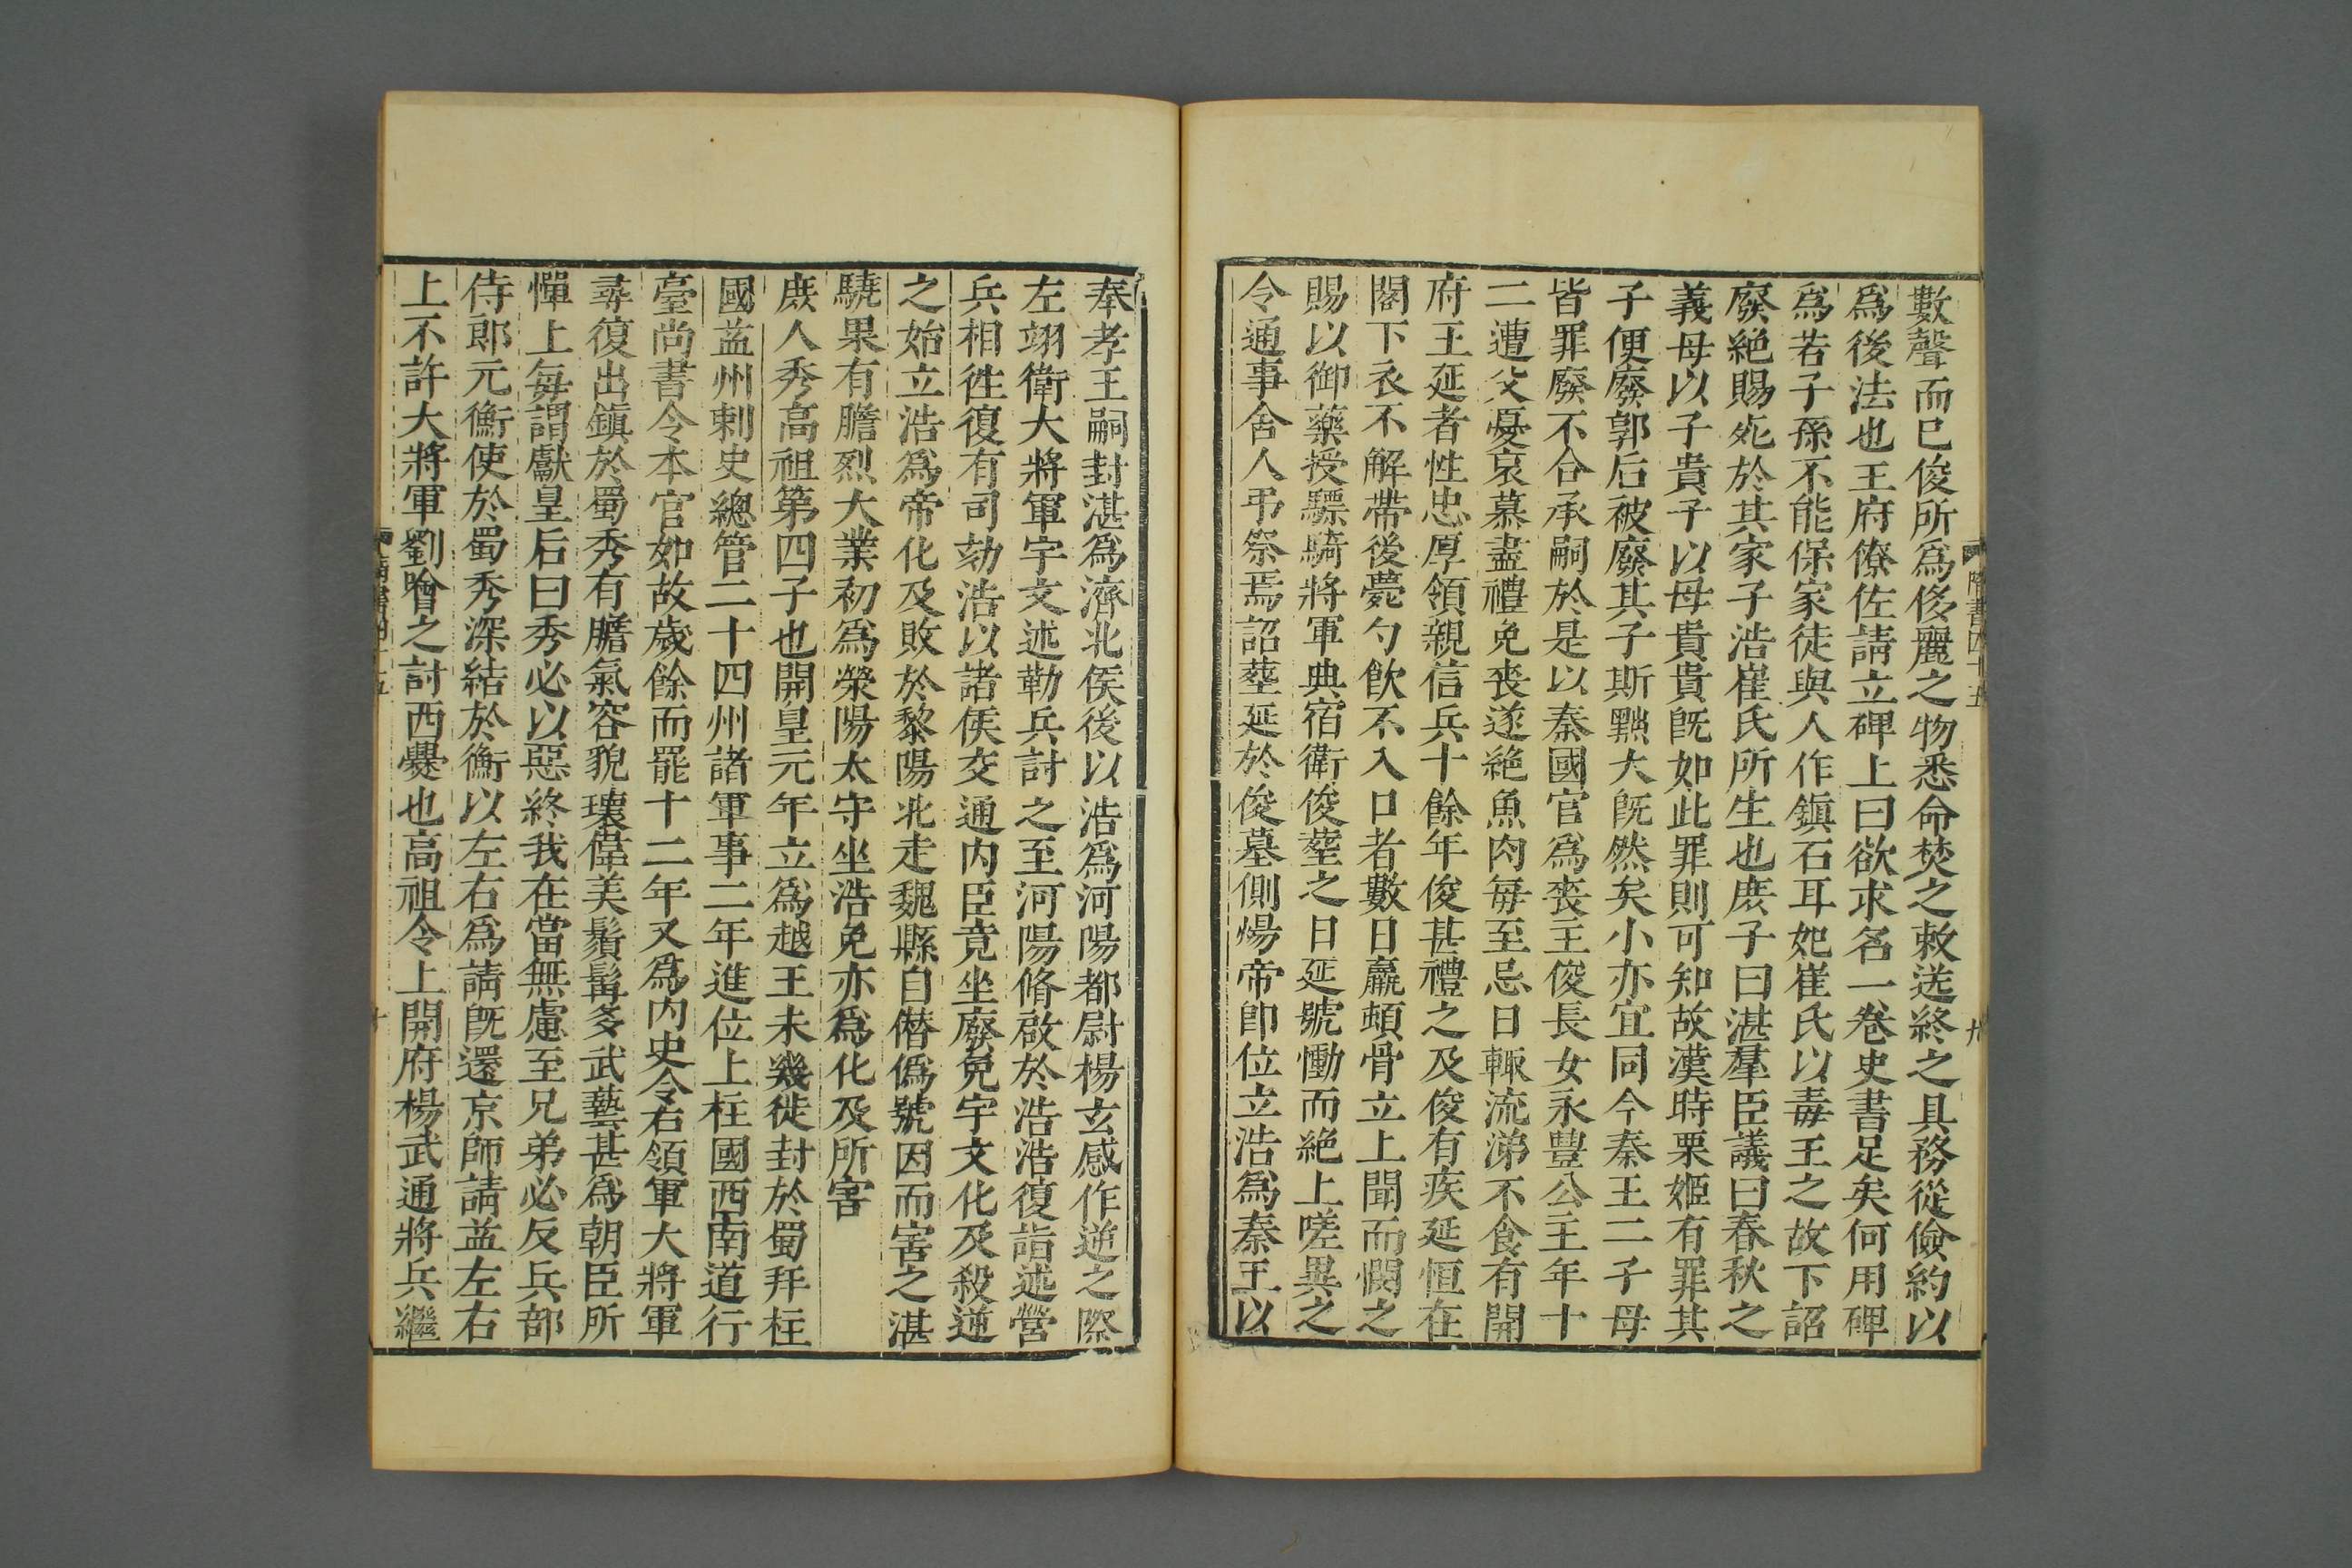 數聲而已俊所爲侈麗之物悉命焚之敕送終之具務從儉約以
爲後法也王府僚佐請立碑上曰欲求名一卷史書足矣何用碑
爲若子孫不能保家徒與人作鎮石耳妃崔氏以毒王之故下詔
廢絶賜死於其家子浩崔氏所生也庶子曰湛羣臣議曰春秋之
義母以子貴子以母貴貴旣如此罪則可知故漢時栗姬有罪其
子便廢郭后被廢其子斯黜大旣然矣小亦宜同今秦王二子母
皆罪廢不合承嗣於是以秦國官爲喪主俊長女永豐公主年十
二遭父憂哀慕盡禮免喪遂絶魚肉每至忌日輒流涕不食有開
府王延者性忠厚領親信兵十餘年俊甚禮之及俊有疾延恒在
閣下衣不解帶後薨勺飲不入口者數日羸頓骨立上聞而憫之
賜以御藥授驃騎將軍典宿衛俊葬之日延號慟而絶上嗟異之
令通事舍人弔祭焉詔葬延於俊墓側煬帝卽位立浩爲秦王以
隋書四十五
九
奉孝王嗣封湛爲濟北侯後以浩爲河陽都尉楊玄感作逆之際
左翊衛大將軍宇文述勒兵討之至河陽脩啟於浩浩復詣述營
兵相徃復有司劾浩以諸侯交通内臣竟坐廢免宇文化及殺逆
之始立浩爲帝化及敗於黎陽北走魏縣自僭僞號因而害之湛
驍果有膽烈大業初爲滎陽太守坐浩免亦爲化及所害
庶人秀高祖第四子也開皇元年立爲越王未幾徙封於蜀拜柱
國益州刺史總管二十四州諸軍事二年進位上柱國西南道行
臺尚書令本官如故歲餘而罷十二年又爲内史令右領軍大將軍
尋復出鎮於蜀秀有膽氣容貌瓌偉美鬚髯多武藝甚爲朝臣所
憚上每謂獻皇后曰秀必以惡終我在當無慮至兄弟必反兵部
侍郎元衡使於蜀秀深結於衡以左右爲請旣還京師請益左右
上不許大將軍劉噲之討西爨也高祖令上開府楊武通將兵繼